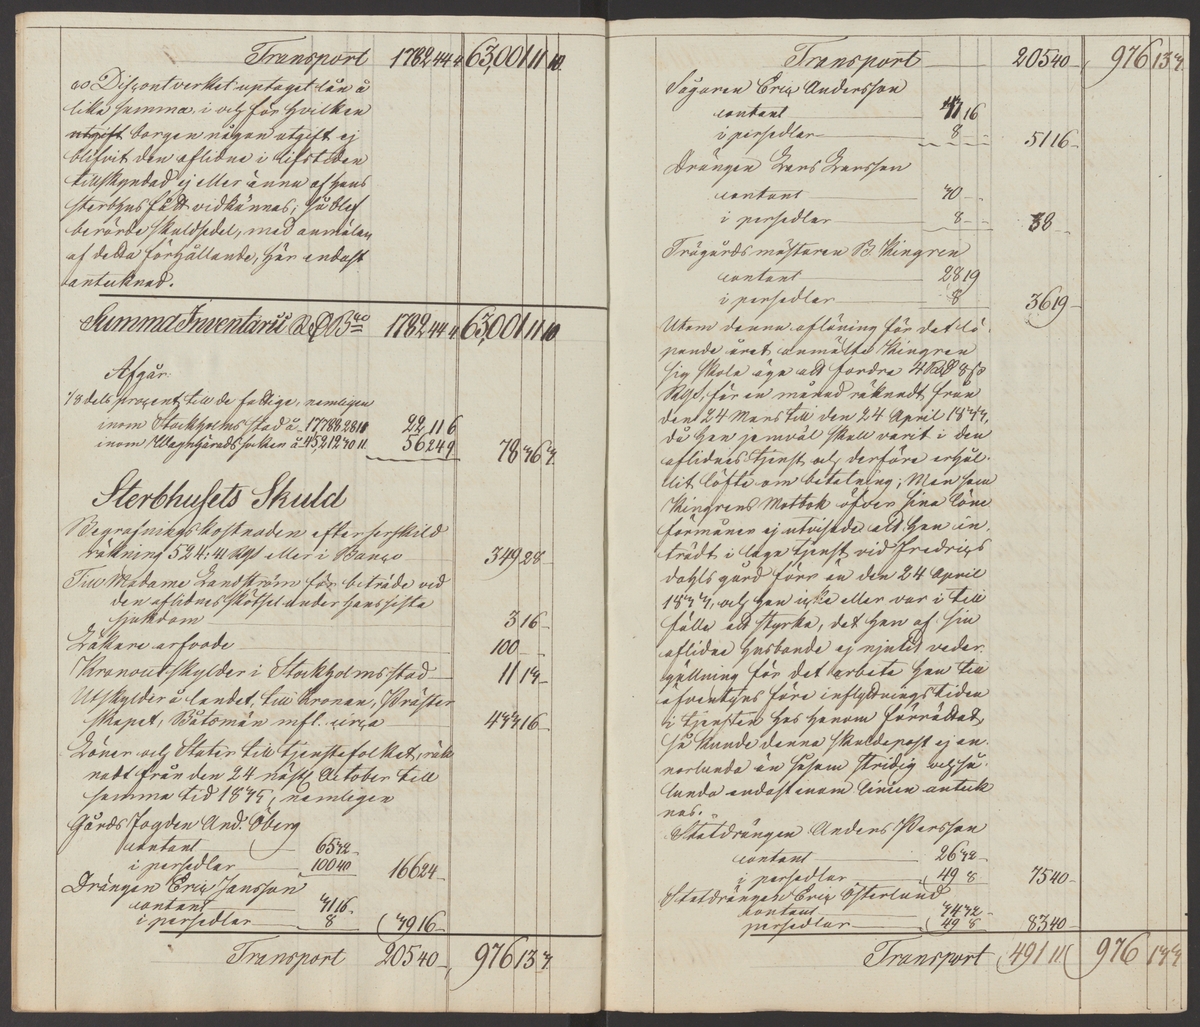 Transport 1782 44 4 63,001 11 10.
Discontverket uptaget lån å
lika summa, i och för hvilken
utgift borgen någon utgift ej
blifvit den aflidne i lifstiden
tillskyndad ej eller ännu af hans
sterbhus fått vidkännas; så blef
berörde skuldsedel, med anmälan
af detta förhållande, här endast
antecknad.
Summa Inventarii 1782 44 4 63,001 11 10
Afgår:
1/8 dels procent till de fattige, nemligen
inom Stockholms stad å 17788 28 10 22 11 6
inom socken å 45,212 40 11 56 24 9 78 46
Sterbhusets Skuld
Begrafningskostnaden efter serskild
räkning 524: 41 Rgs eller i Banco 349 28
Till Madame Landström för beträde vid
den aflidnes skötsel under hans sista
sjukdom 3 16
Läkare arfvode 100
Kronoutskylder i Stockholms Stad 11 14
Utskylder å landet, till Kronan, Präster
skapet, Båtsmän mfl. circa 444 16
Löner och Stater till tjenstefolket, räk
nadt från den 24 näst. October till
samma tid 1845, nemligen
Gårds Fogden And. Öberg
contant 65 32
i persedlar 100 40 166 24
Drängen Eric Jansson
contant 31 16
i persedlar 8 39 16
Transport 205 40 976 13
Transport 205 40 976 13
Sågaren Eric Andersson
contant 43 16
i persedlar 8 51 16
Drängen Lars Larsson
contant 30
i persedlar 8 38
Trägårdsmästaren B. Kingren
contant 28 19
i persedlar 8 36 19
Utom denna aflöning för det lö
pande året anmälte Kingren
sig skola äga att fordra 4 8 s
Rgs, för en månad räknadt från
den 24 Mars till den 24 April 1844,
då han jemväl skall varit i den
aflidnes tjenst och derföre erhål
lit löfte om betalning; Men som
Kingrens Motbok öfver sina löne
förmåner ej utvisade att han in
trädt i laga tjenst vid Fredrics
dahls gård förr än den 24 April
1844, och han icke eller var i till
fälle att styrka, det han af sin
aflidne husbonde ej njutit veder
gällning för det arbete han till
äfventyrs före inflyttningstiden
i tjensten hos honom förrättat,
så kunde denna skuldpost ej an
norlunda än såsom stridig och så
lunda endast inom linien anteck
nas.
Statdrängen Anders Persson
contant 26 32
i persedlar 49 8 75 40
Statdrängen Eric Österlund
contant 34 32
persedlar 49 8 83 40
Transport 491 11 976 13